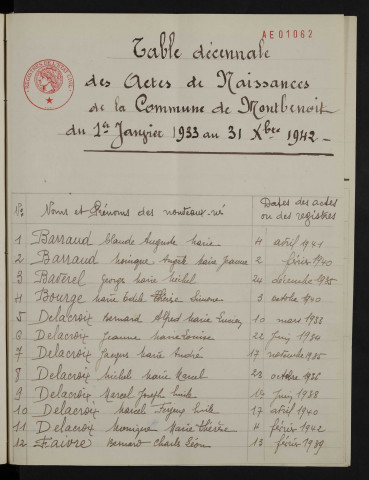 AE01062
Table décennale
des Actes de Naissances
de la Commune de Montbenoit
du 1er Janvier 1933 au 31 Xbre 1942 -
Nos Noms et Prénoms des nouveaux-nés Dates des actes ou des registres
1 Barraud Claude Auguste Marie 4 avril 1941
2 Barraud Monique Angèle Marie Jeanne 2 février 1940
3 Baverel Georges Marie Michel 24 décembre 1935
4 Bourge Marie Edith Simone 3 octobre 1940
5 Delacroix Bernard Alfred Marie 10 mars 1938
6 Delacroix Jeanne Marie Louise 22 Juin 1930
7 Delacroix Jacques Marie André 17 novembre 1935
8 Delacroix Michel Marie Marcel 22 octobre 1936
9 Delacroix Marcel Joseph Emile 14 Juin 1938
10 Delacroix Marcel Emile 17 avril 1940
11 Delacroix Monique Marie Thérèse 4 février 1942
12 Faivre Bernard Charles Léon 13 février 1939